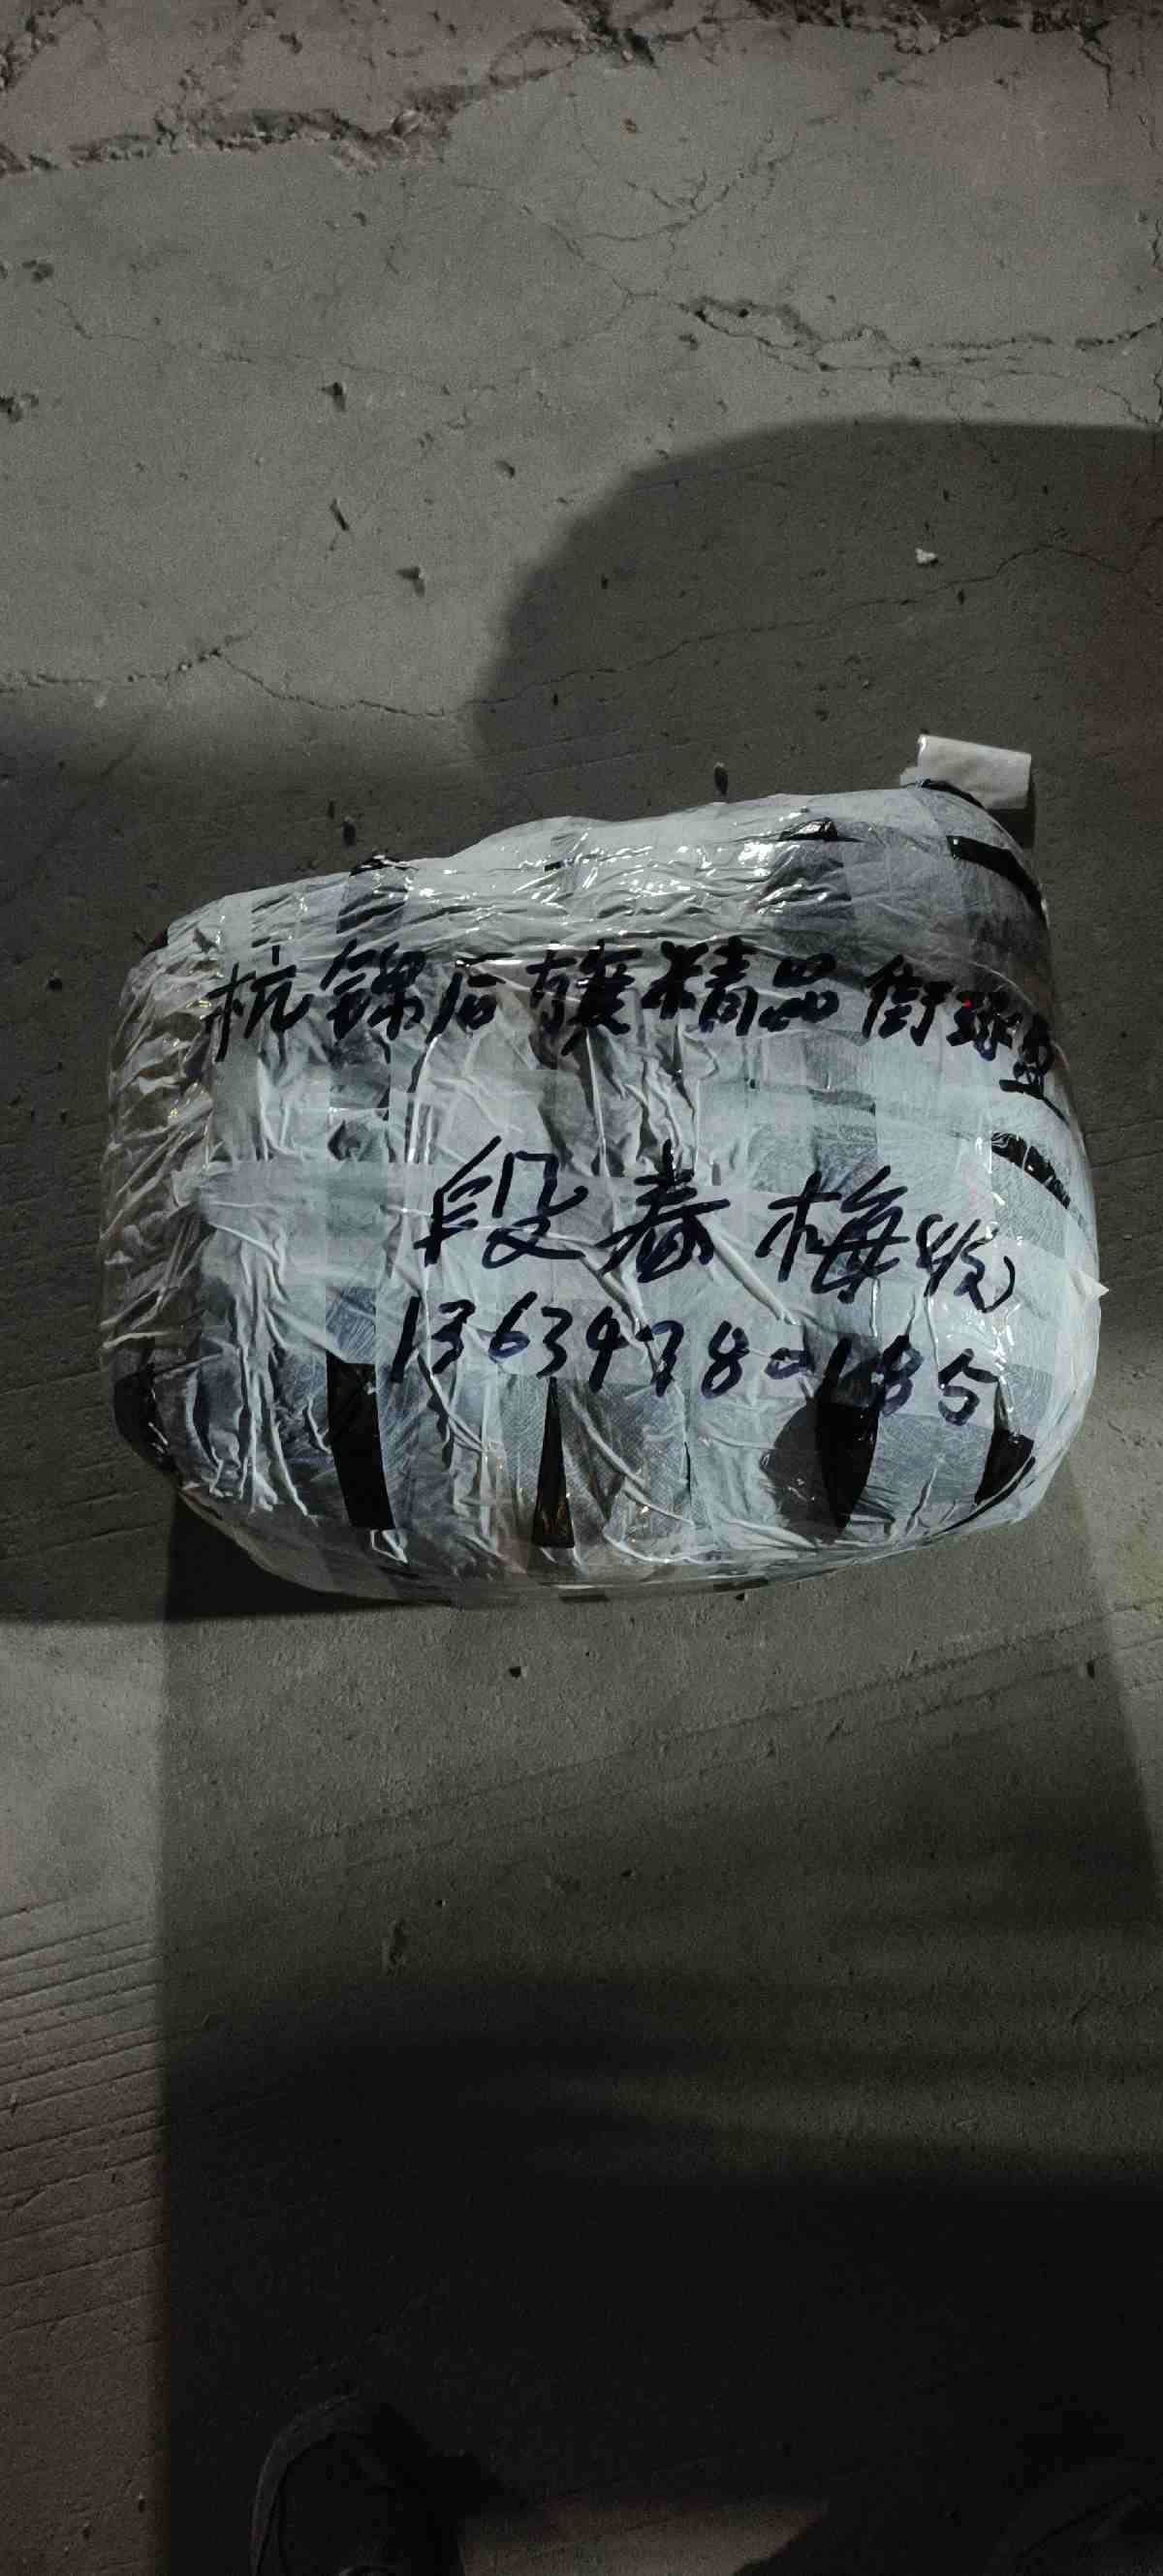 杭锦后旗精品街
段春梅收
13634780185